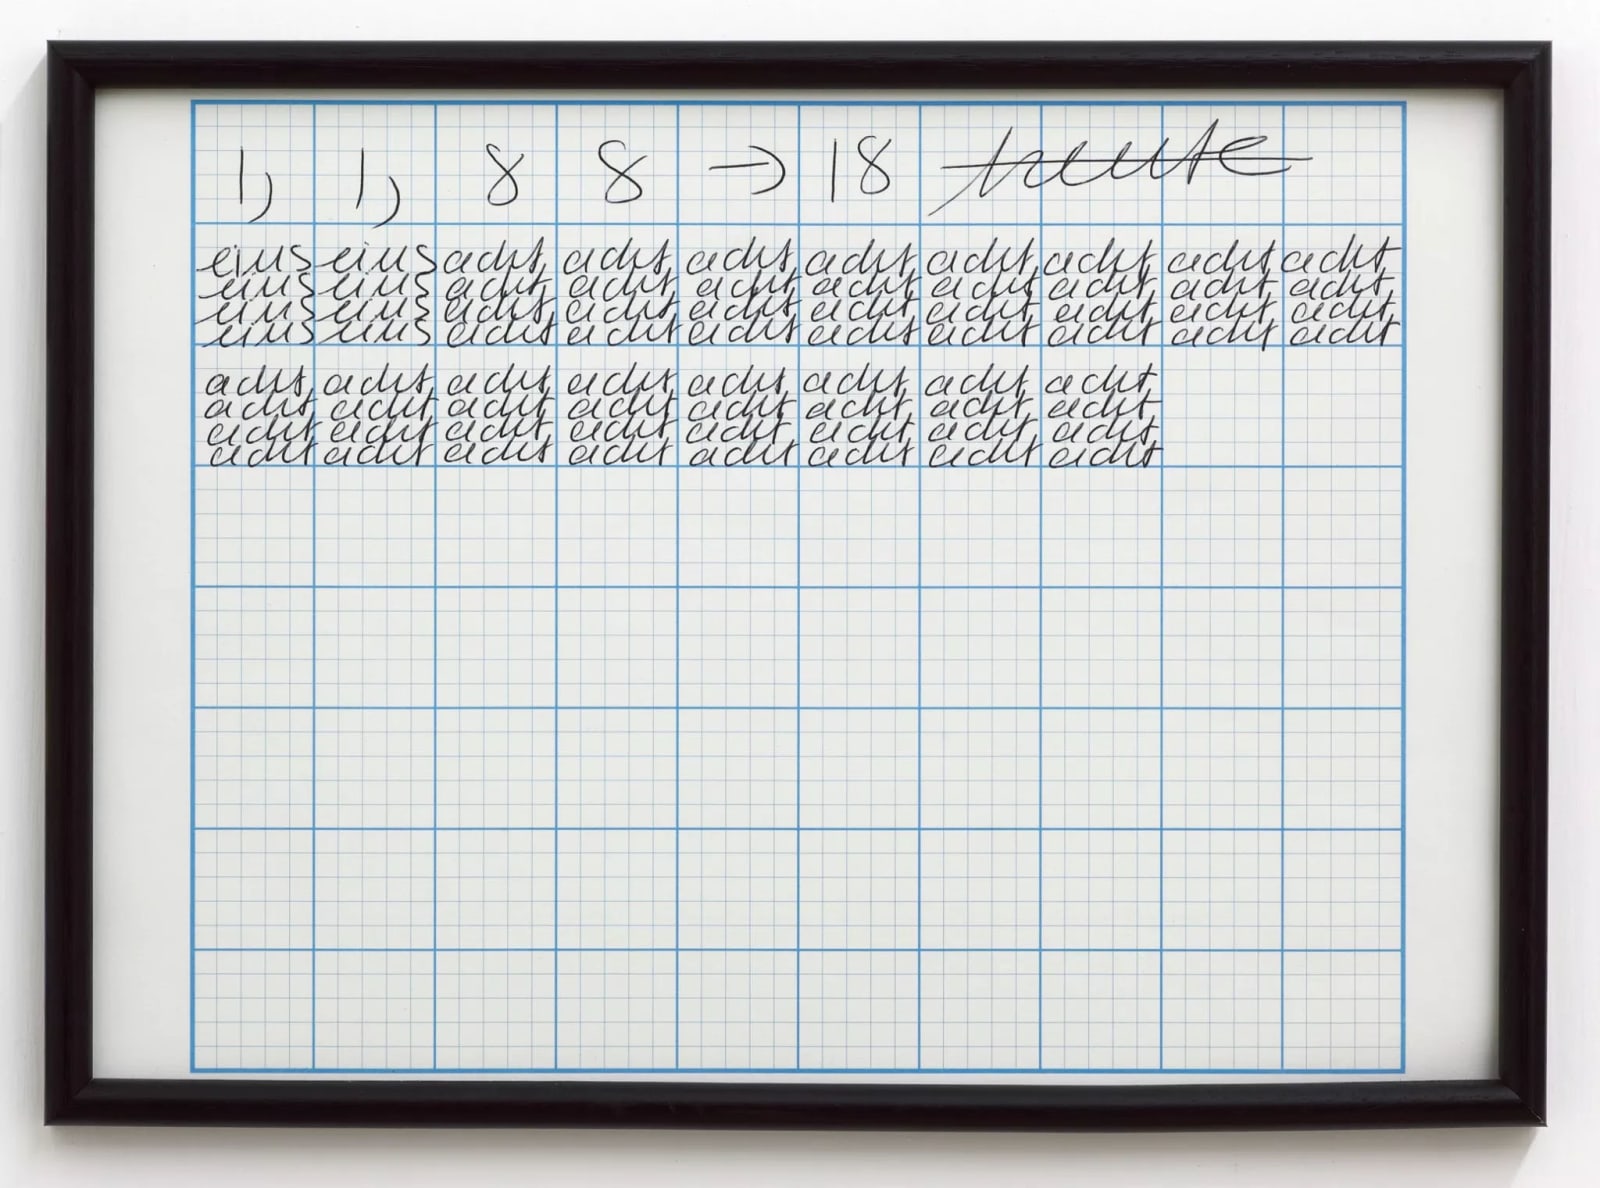 1, 1, 8 8 → 18 heute
eins eins acht acht acht acht acht acht acht acht
eins eins acht acht acht acht acht acht acht acht
eins eins acht acht acht acht acht acht acht acht
eins eins acht acht acht acht acht acht acht acht
acht acht acht acht acht acht acht acht
acht acht acht acht acht acht acht acht
acht acht acht acht acht acht acht acht
acht acht acht acht acht acht acht acht